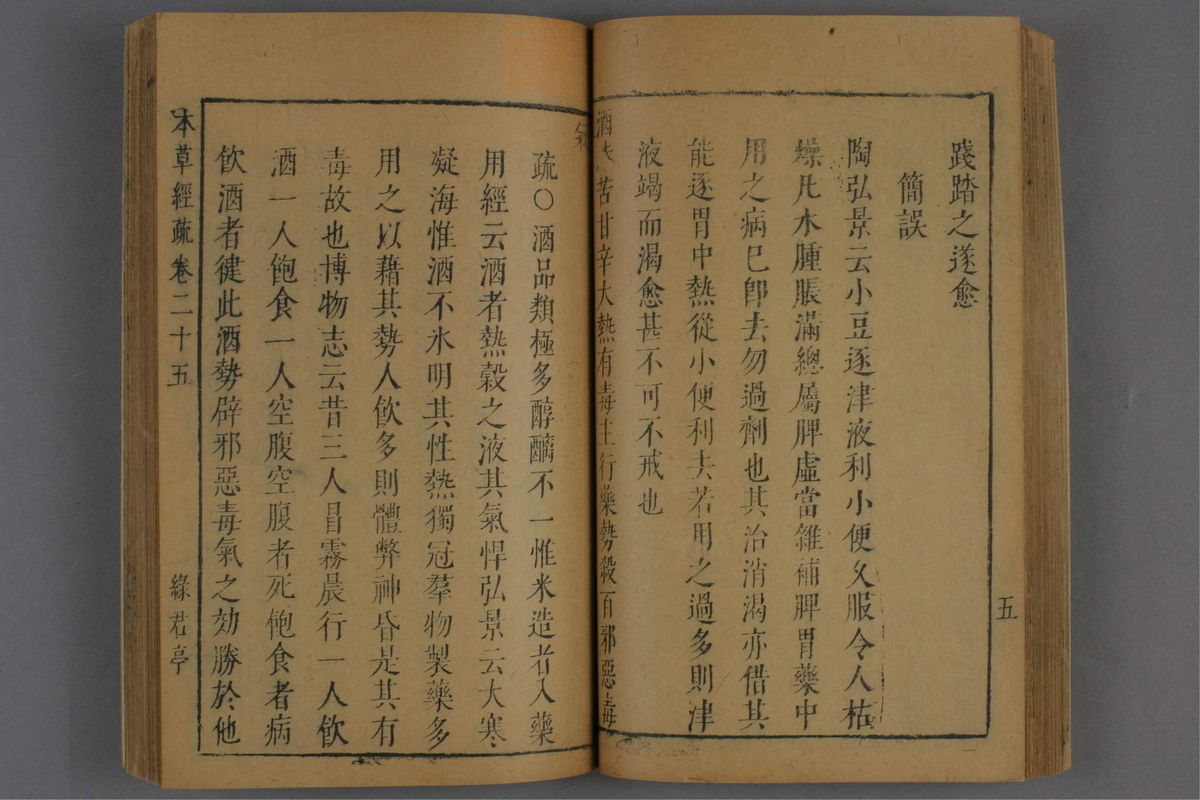 五
踐踏之遂愈
簡誤
陶弘景云小豆逐津液利小便久服令人枯
燥凡水腫脹滿總屬脾虛當雜補脾胃藥中
用之病已卽去勿過劑也其治消渴亦借其
能逐胃中熱從小便利去若用之過多則津
液竭而渴愈甚不可不戒也
酒 苦甘辛大熱有毒主行藥勢殺百邪惡毒
氣
疏○酒品類極多醇醨不一惟米造者入藥
用經云酒者熱穀之液其氣悍弘景云大寒
凝海惟酒不氷明其性熱獨冠羣物製藥多
用之以藉其勢人飲多則體弊神昏是其有
毒故也博物志云昔三人冒霧晨行一人飲
酒一人飽食一人空腹空腹者死飽食者病
飲酒者徤此酒勢辟邪惡毒氣之効勝於他
本草經疏 卷二十五 綠君亭